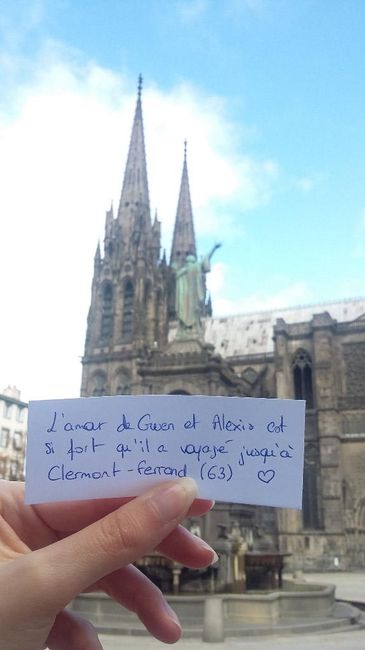 L'amour de Gwen et Alexis est
si fort qu'il a voyagé jusqu'à
Clermont-Ferrand (63) ♡